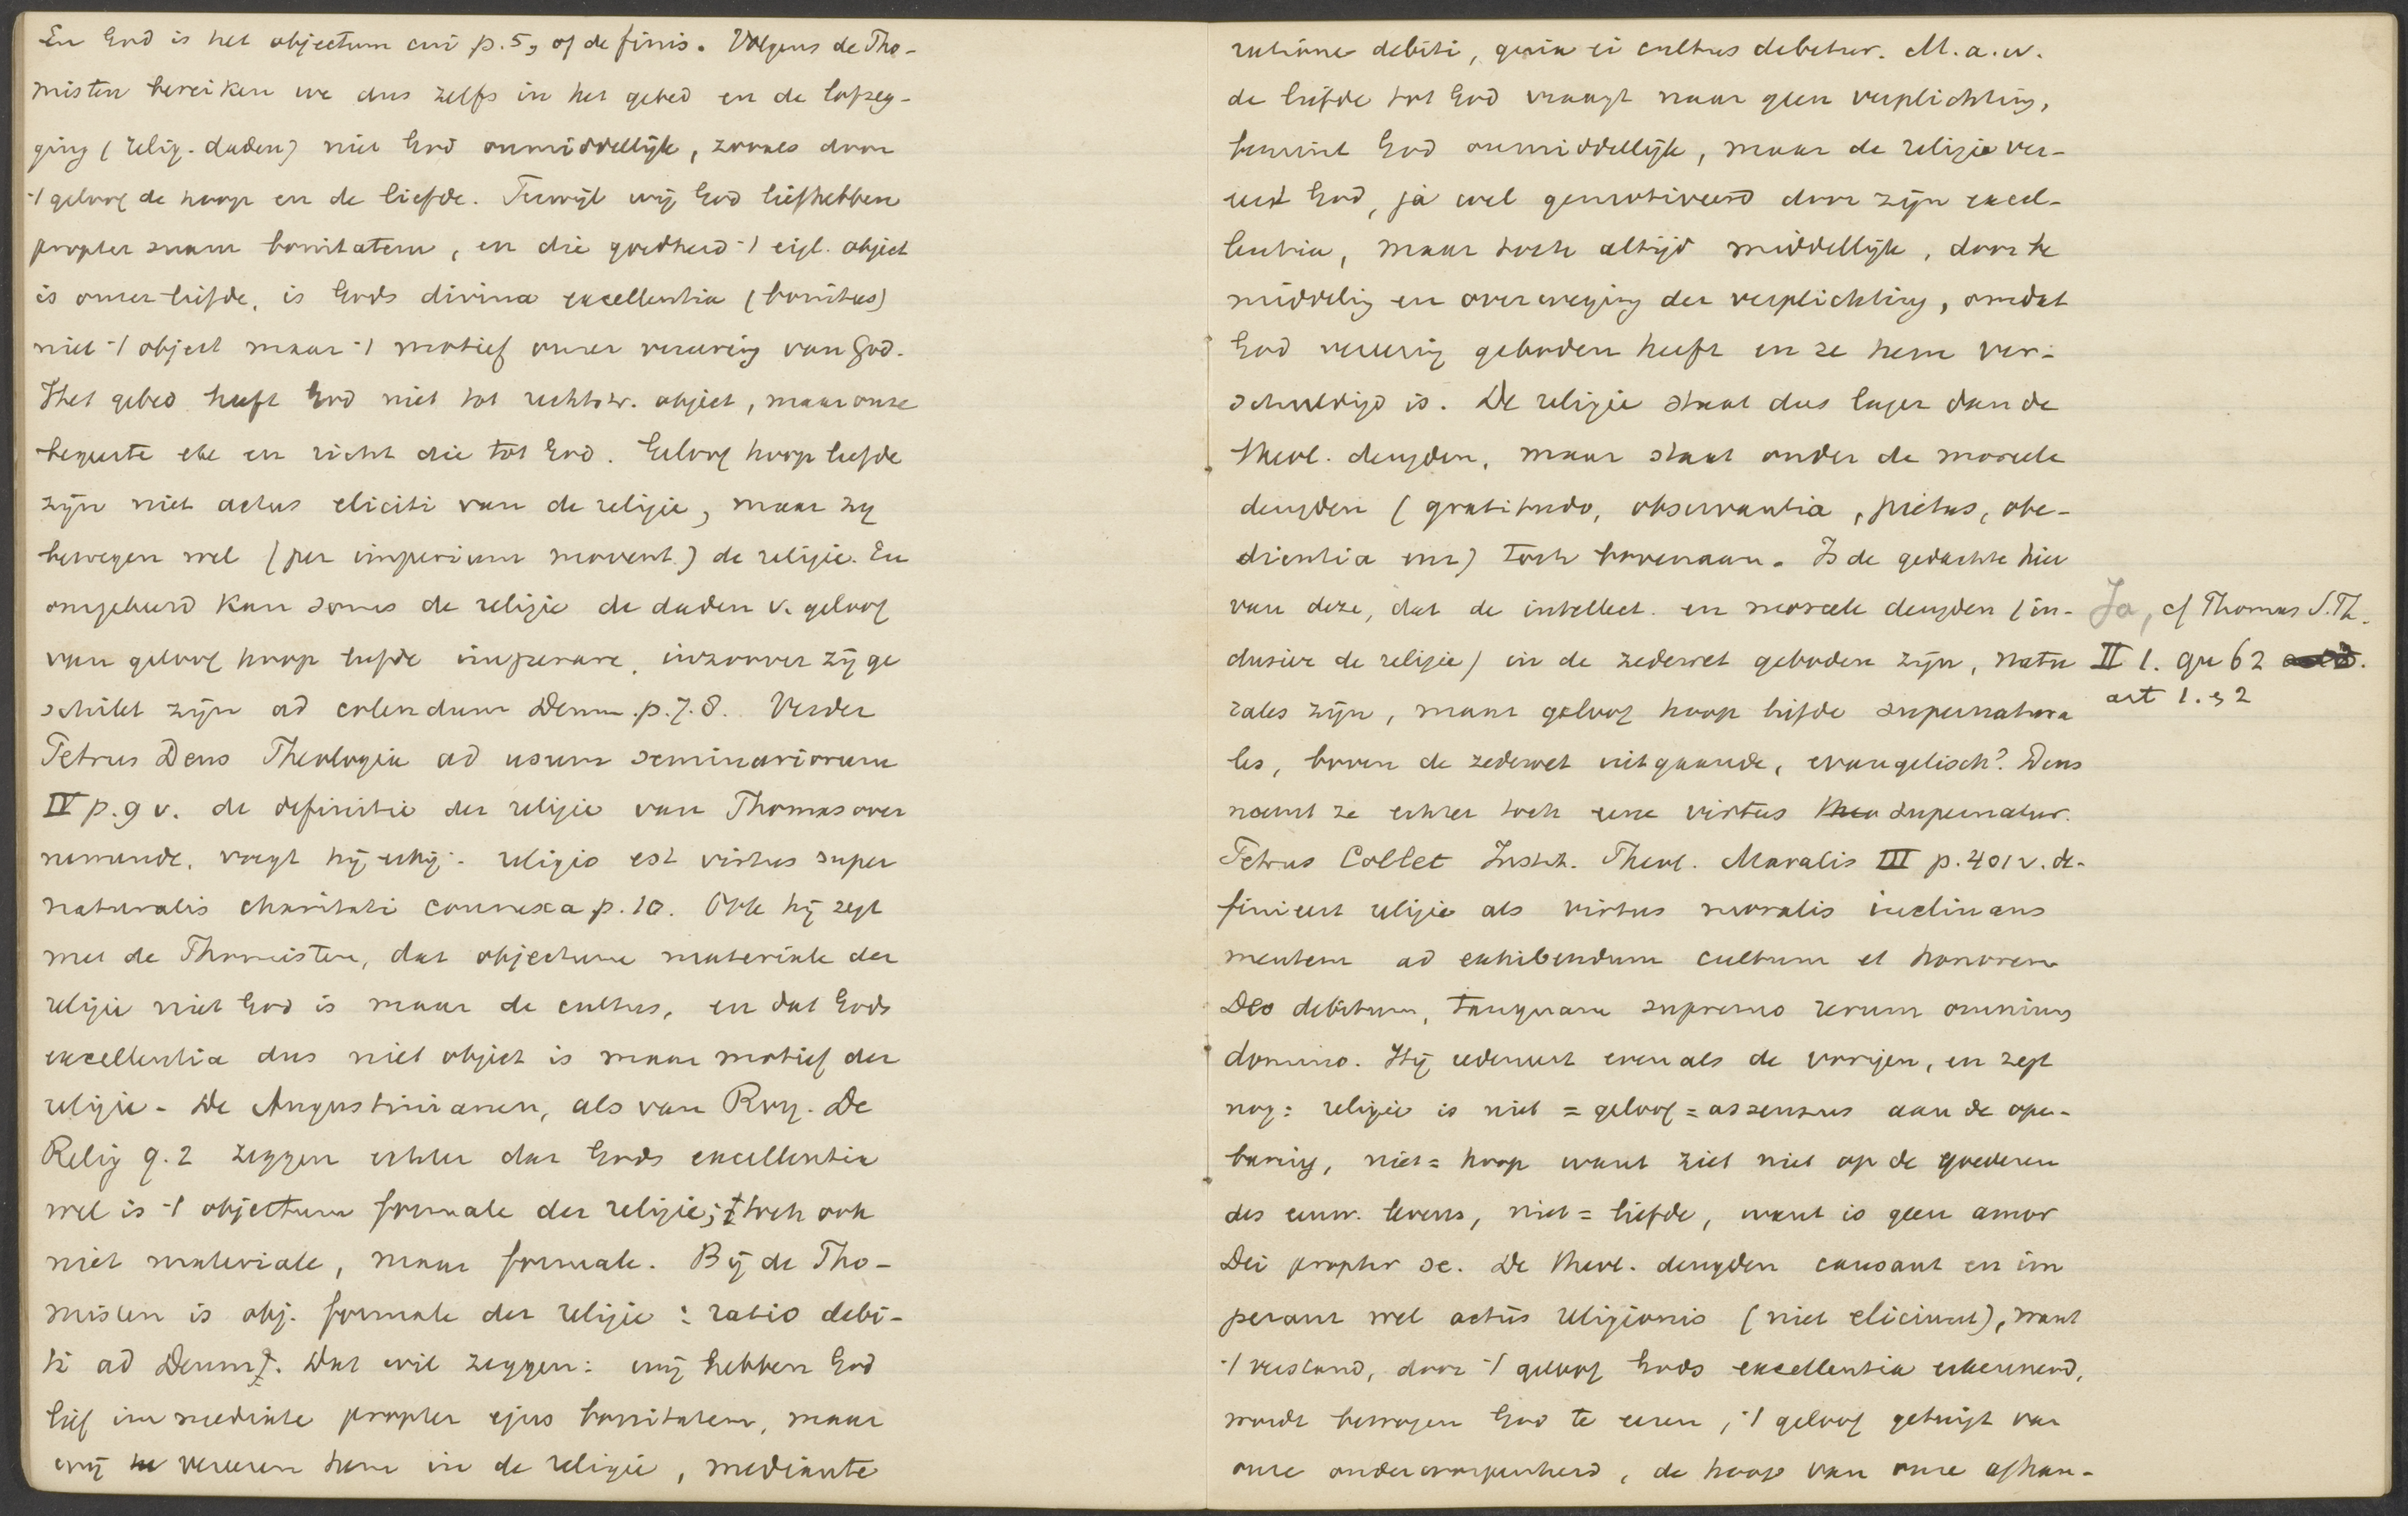 En God is het objectum cui p. 5, of de finis. Volgens de Tho-
misten bereiken we dus zelfs in het gebed en de lofzeg-
ging (relig. daden) niet God onmiddellijk, zooals door
't geloof de hoop en de liefde. Terwijl wij God liefhebben
propter suam bonitatem, en die goedheid 't eigl. object
is onzer liefde, is Gods divina excellentia (bonitas)
niet 't object maar 't motief onzer vereering van God.
Het gebed heeft God niet tot rechtstr. object, maar onze
begeerte etc en richt die tot God. Geloof hoop liefde
zijn niet actus eliciti van de religie, maar zij
bewegen wel (per imperium movent.) de religie. En
omgekeerd kan soms de religie de daden v. geloof
van geloof hoop liefde imperare, inzoover zij ge
schikt zijn ad colendum Deum. p. 7. 8. Verder
Petrus Dens Theologia ad usum seminariorum
IV p. 9 v. de definitie der religie van Thomas over
nemende, voegt hij erbij: religio est virtus super
naturalis charitati connexa p. 10. Ook hij zegt
met de Thomisten, dat objectum materiale der
religie niet God is maar de cultus, en dat Gods
excellentia dus niet object is maar motief der
religie. De Augustinianen, als van Roy. De
Relig q. 2 zeggen echter dat Gods excellentia
wel is 't objectum formale der religie; toch ook
niet materiale, maar formale. Bij de Tho-
misten is obj. formale der religie: ratio debi-
ti ad Deum. Dat wil zeggen: wij hebben God
lief immediate propter ejus bonitatem, maar
wij vereeren hem in de religie, mediante
ratione debiti, quia ei cultus debetur. M. a. w.
de liefde tot God vraagt naar geen verplichting,
bemint God onmiddellijk, maar de religie ver-
eert God, ja wel gemotiveerd door zijn excel-
lentia, maar toch altijd middellijk, door be
middeling en overweging der verplichting, omdat
God vereering geboden heeft en ze hem ver-
schuldigd is. De religie staat dus lager dan de
theol. deugden, maar staat onder de moreele
deugden (gratitudo, observantia, pietas, obe-
dientia enz) toch bovenaan. Is de gedachte hier
van deze, dat de intellect. en moreele deugden (in-
clusive de religie) in de zedewet geboden zijn, natu
rales zijn, maar geloof hoop liefde supernatura
les, boven de zedewet uitgaande, evangelisch? Dens
noemt ze echter toch eene virtus supernatur.
Petrus Collet Instit. Theol. Moralis III p. 401 v. de-
finieert religie als virtus moralis inclinans
mentem ad exhibendum cultum et honorem
Deo debitum, tanquam supremo rerum omnium
domino. Hij redeneert evenals de vorigen, en zegt
nog: religie is niet = geloof = assensus aan de open-
baring, niet = hoop want ziet niet op de goederen
des eeuw. levens, niet = liefde, want is geen amor
Dei propter se. De theol. deugden causant en im
perant wel actus religionis (niet eliciunt), want
't verstand, door 't geloof Gods excellentia erkennend,
wordt bewogen God te eeren, 't geloof getuigt van
onze onderworpenheid, de hoop van onze afhan-
Ja, cf Thomas S. Th.
II 1. qu 62
art 1. & 2